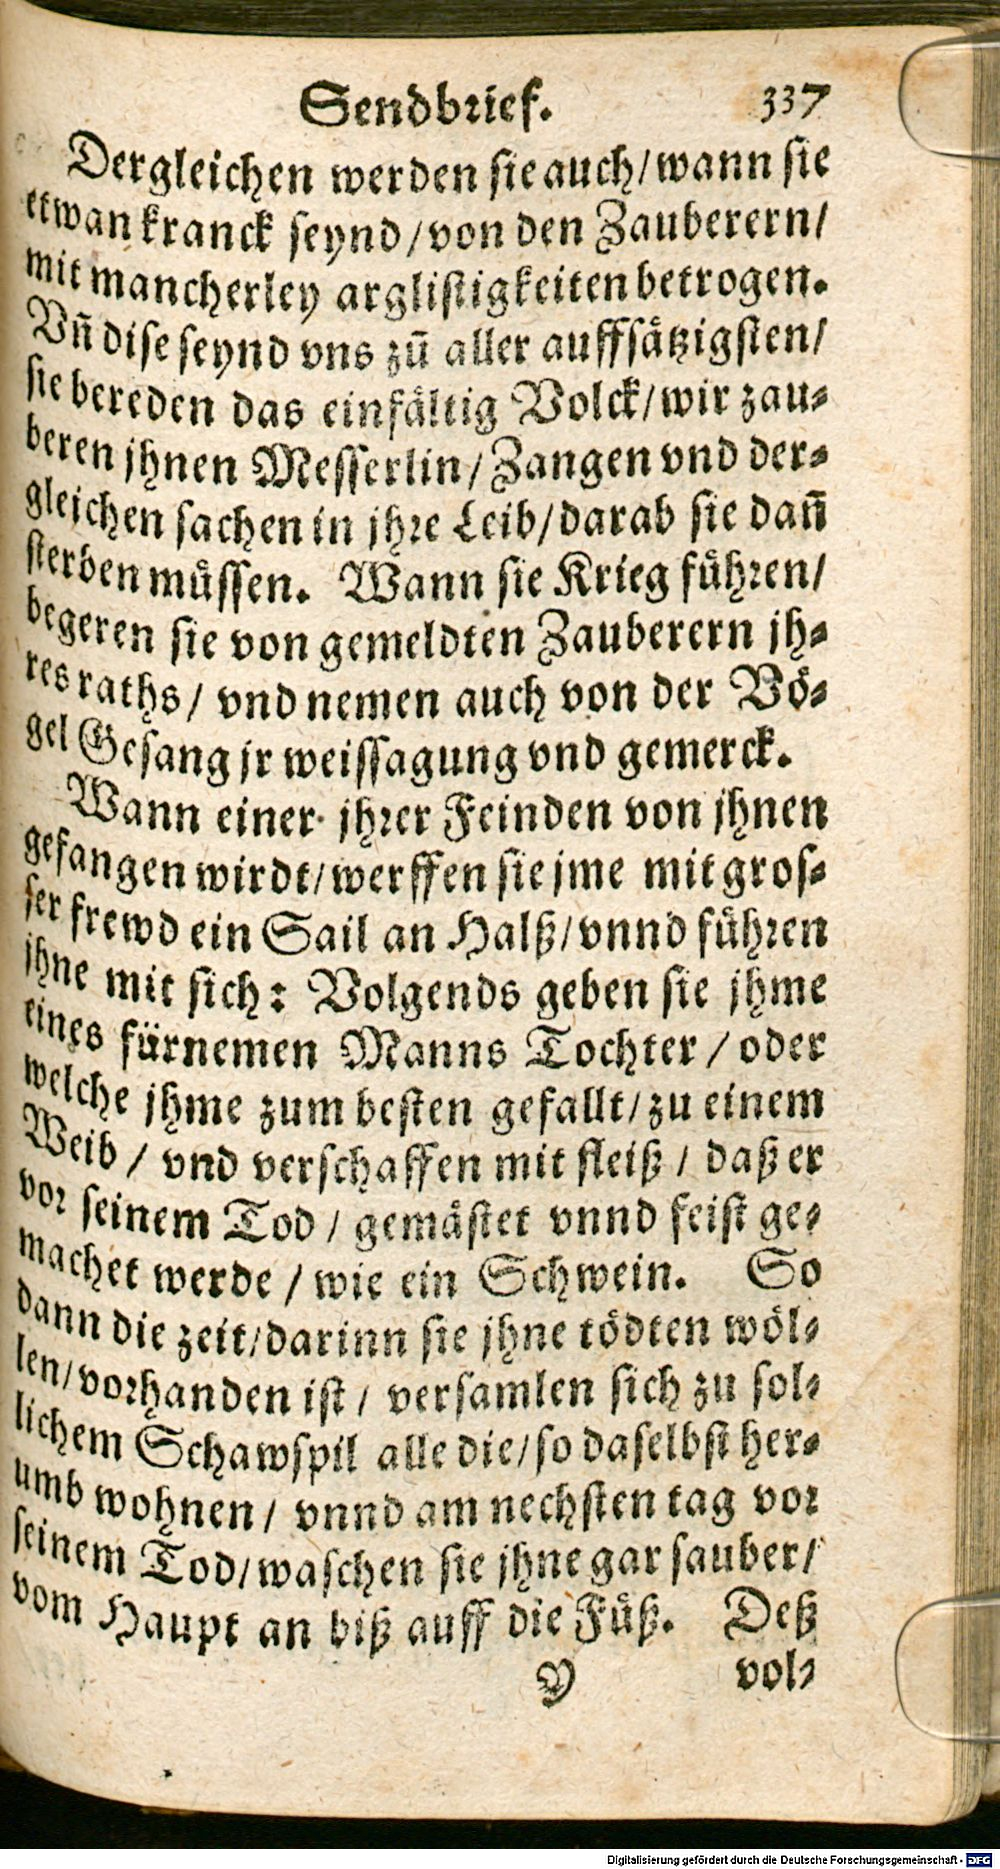 Sendbrief. 337
Dergleichen werden sie auch/wann sie
etwan kranck seynd/von den Zauberern/
mit mancherley arglistigkeiten betrogen.
Vñ dise seynd vns zũ aller auffsätzigsten/
sie bereden das einfältig Volck/wir zau-
beren jhnen Messerlin/Zangen vnd der-
gleichen sachen in jhre Leib/darab sie dañ
sterben müssen. Wann sie Krieg führen/
begeren sie von gemeldten Zauberern jh-
res raths/ vnd nemen auch von der Vö-
gel Gesang jr weissagung vnd gemerck.
Wann einer jhrer Feinden von jhnen
gefangen wirdt/werffen sie jme mit gros-
ser frewd ein Sail an Halß/vnnd führen
jhne mit sich: Volgends geben sie jhme
eines fürnemen Manns Tochter/ oder
welche jhme zum besten gefallt/zu einem
Weib/ vnd verschaffen mit fleiß/ daß er
vor seinem Tod/ gemästet vnnd feist ge-
machet werde/ wie ein Schwein. So
dann die zeit/darinn sie jhne tödten wöl-
len/vorhanden ist/ versamlen sich zu sol-
lichem Schawspil alle die/so daselbst her-
umb wohnen/ vnnd am nechsten tag vor
seinem Tod/waschen sie jhne gar sauber/
vom Haupt an biß auff die Füß. Deß
Y vol-
Digitalisierung gefördert durch die Deutsche Forschungsgemeinschaft - DFG